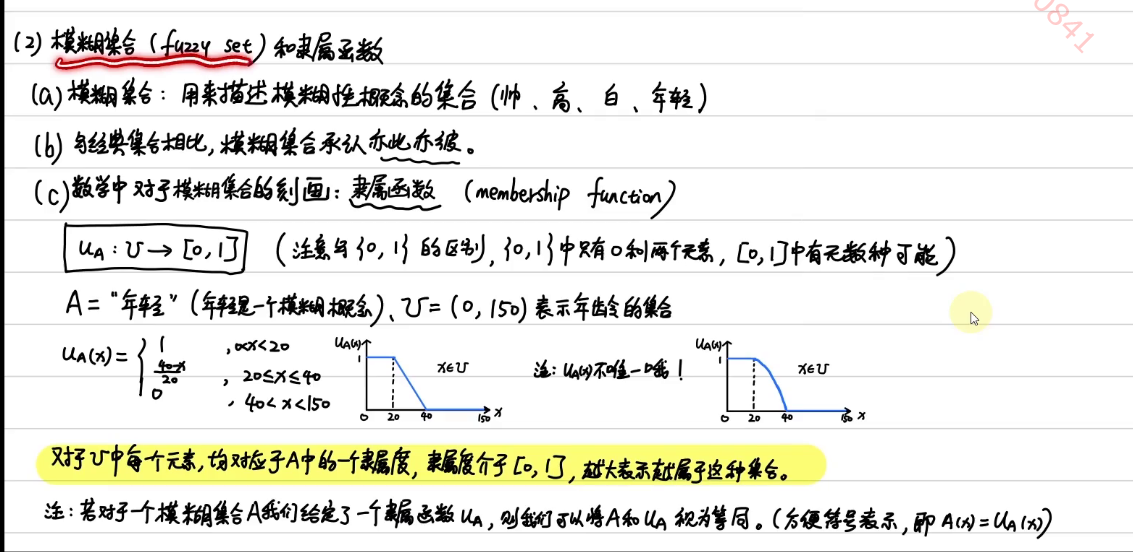 0841
(2) 模糊集合 (fuzzy set) 和隶属函数
(a) 模糊集合：用来描述模糊性概念的集合 (帅、高、白、年轻)
(b) 与经典集合相比，模糊集合承认亦此亦彼。
(c) 数学中对于模糊集合的刻画：隶属函数 (membership function)
u_A : U → [0,1] (注意与{0,1}的区别，{0,1}中只有0和1两个元素，[0,1]中有无数种可能)
A = "年轻" (年轻是一个模糊概念)、U = (0,150) 表示年龄的集合
u_A(x) = { 1 , 0<x<20
40-x/20 , 20≤x≤40
0 , 40<x<150
u_A(x) 1 0 20 40 150 x x∈U
注：u_A(x)不唯一哦！
u_A(x) 1 0 20 40 150 x x∈U
对于U中每个元素，均对应于A中的一个隶属度，隶属度介于[0,1]，越大表示越属于这种集合。
注：若对于一个模糊集合A我们给定了一个隶属函数u_A，则我们可以将A和u_A视为等同。(方便符号表示，即 A(x)=u_A(x))